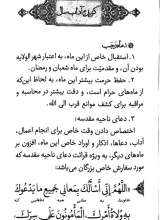 ماه رجب
1. استقبال خاص از این ماه، به اعتبار شهر الولایه
بودن آن، و مقدمیّت برای ماه شعبان و رمضان.
2. حفظ حرمت بیشتر این ماه، به لحاظ این‌که
از ماه‌های حرام است، و دقت بیشتر در محاسبه و
مراقبه برای کشف موانع قرب الی الله.
3. دعای ناحیه مقدسه:
اختصاص دادن وقت خاص برای انجام اعمال،
آداب، دعاها، اذکار و اوراد خاص این ماه، افزون بر
ماه‌های دیگر، به ویژه قرائت دعای ناحیه مقدسه که
مورد سفارش خاص بزرگان می‌باشد:
«اللَّهُمَّ إِنِّي أَسْأَلُكَ بِمَعَانِي جَمِيعِ مَا يَدْعُوكَ
بِهِ وُلَاةُ أَمْرِكَ، الْمَأْمُونُونَ عَلَى سِرِّكَ